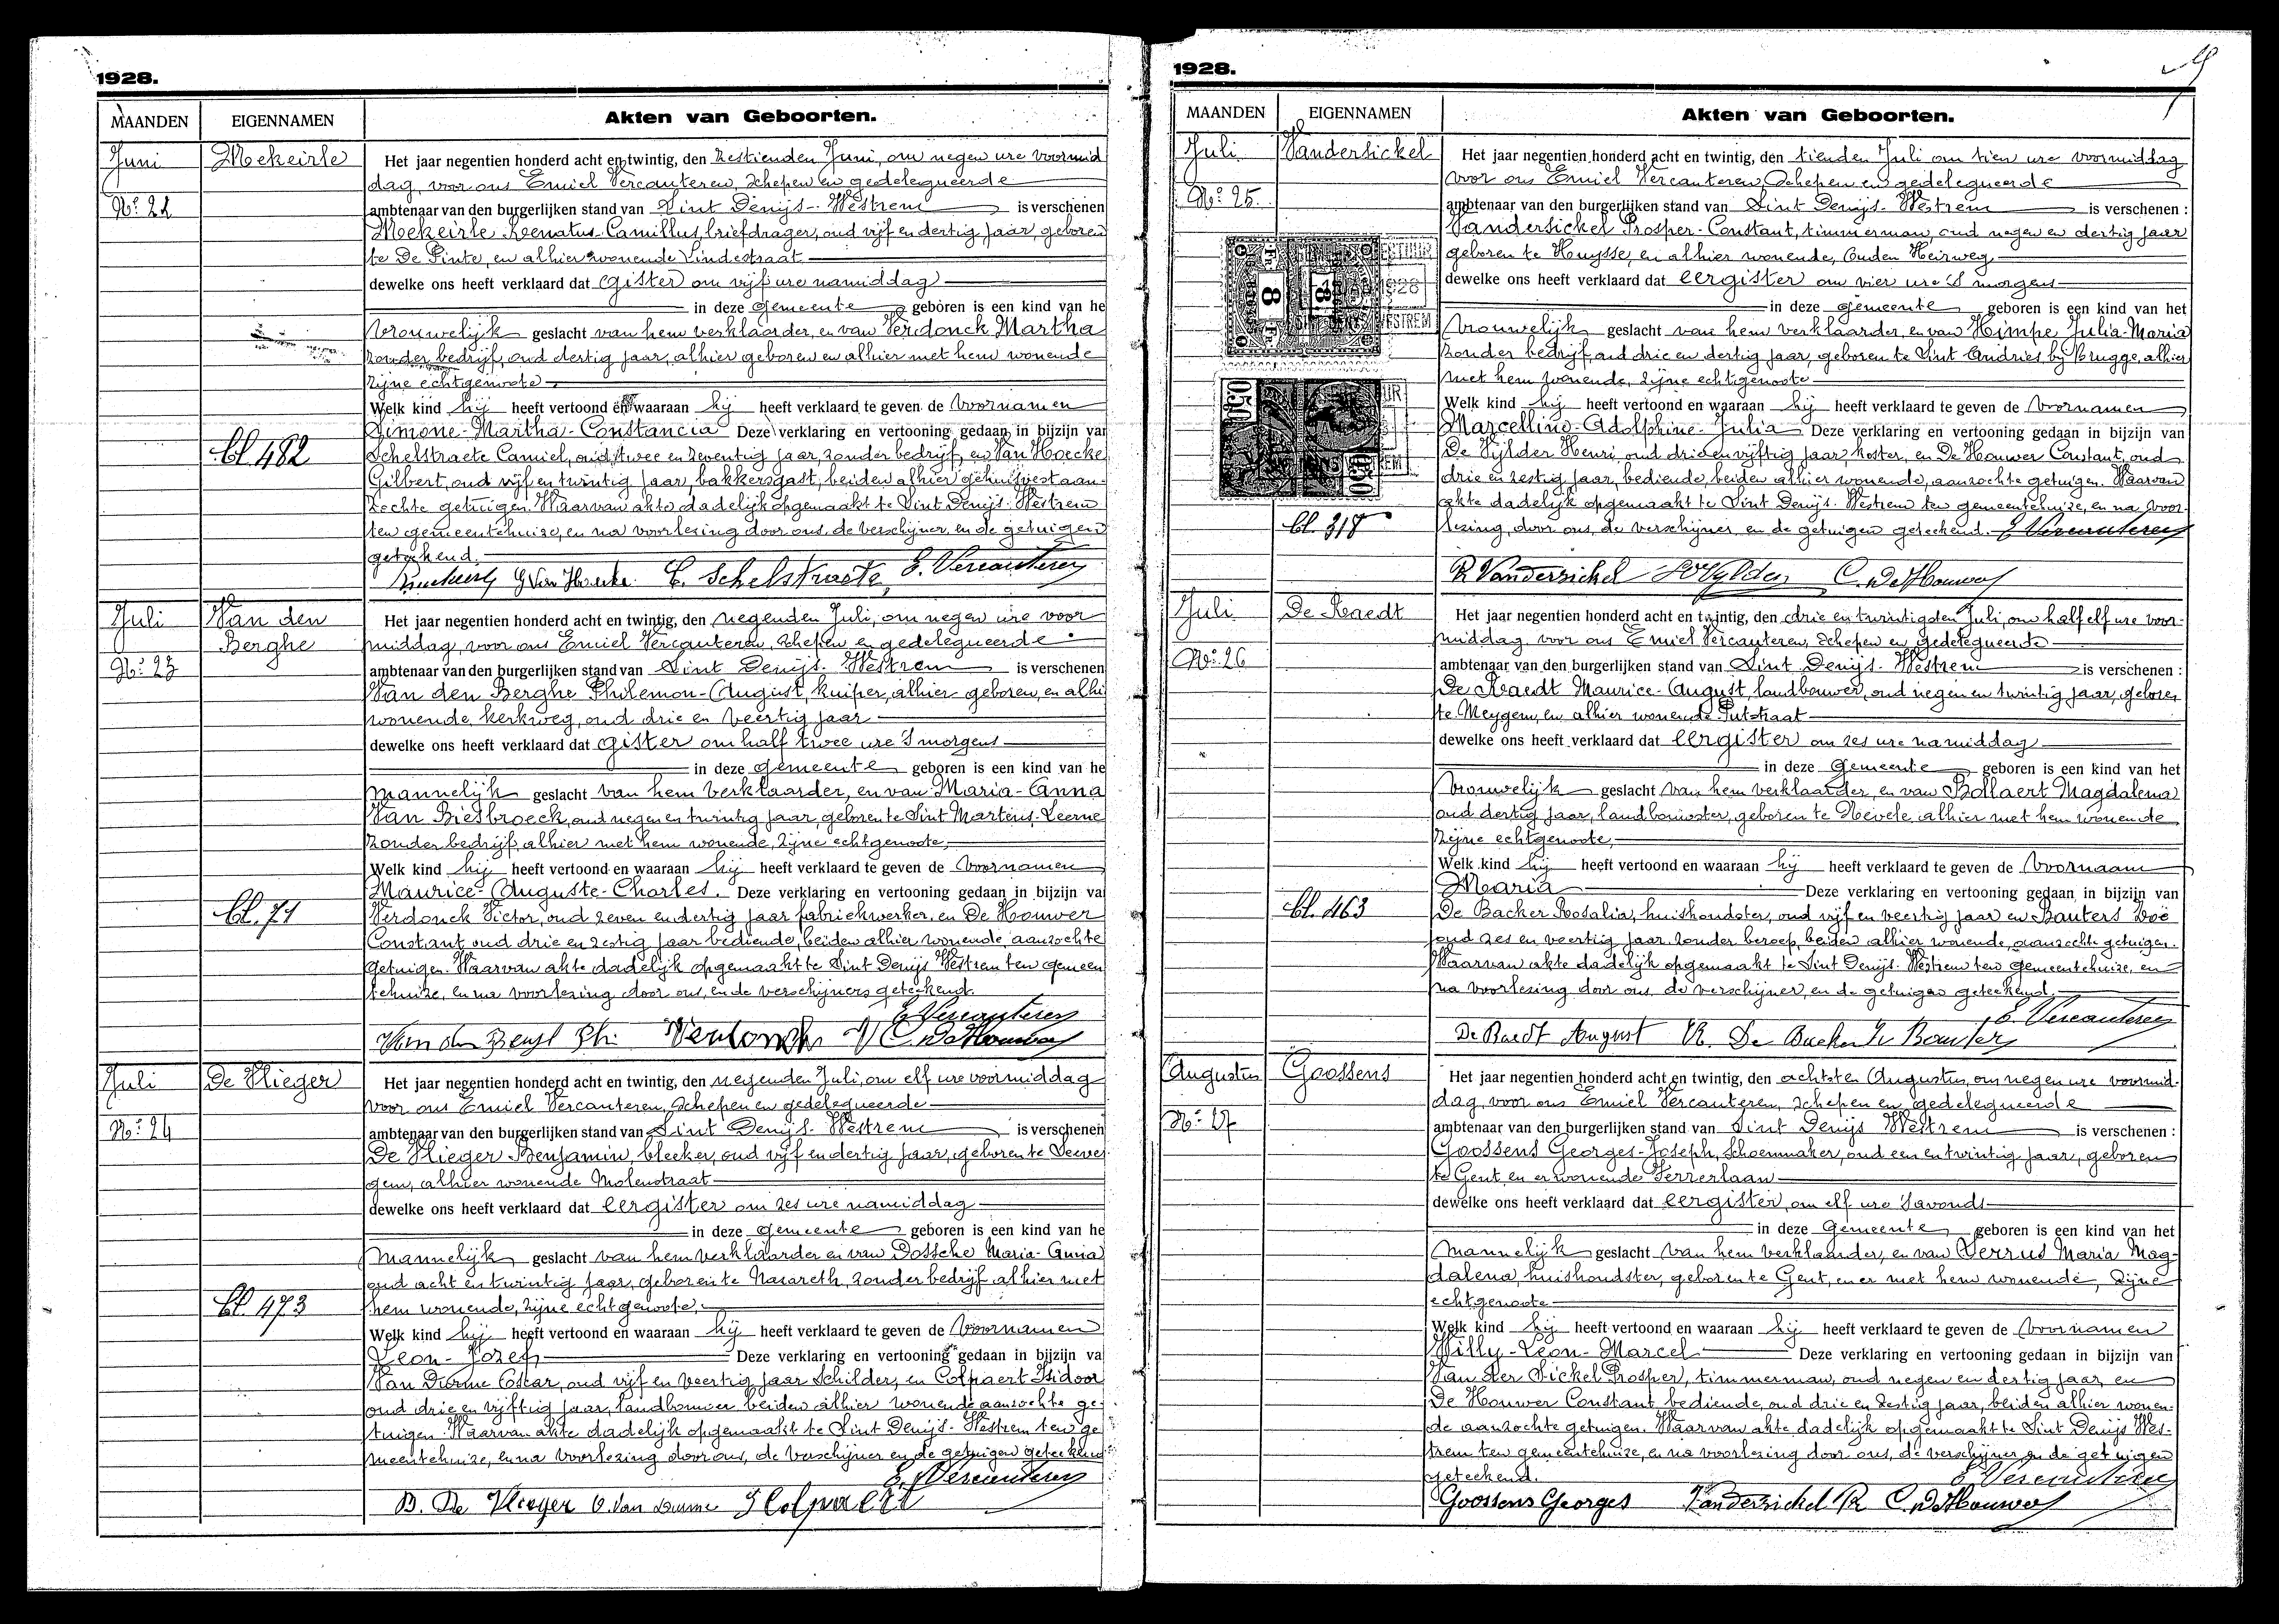 1928.
MAANDEN EIGENNAMEN Akten van Geboorten.
Juni Mekeirle Het jaar negentien honderd acht en twintig, den zestienden Juni, om negen ure voormid
dag, voor ons Emiel Vercauteren, schepen en gedelegueerde
No. 22 ambtenaar van den burgerlijken stand van Sint Denijs-Westrem is verschenen
Mekeirle Renatus-Camillus, briefdrager, oud vijf en dertig jaar, geboren
te De Pinte, en alhier wonende Lindestraat
dewelke ons heeft verklaard dat gister om vijf ure namiddag
in deze gemeente geboren is een kind van he
Vrouwelijk geslacht van hem verklaarder, en van Verdonck Martha
zonder bedrijf, oud dertig jaar, alhier geboren en alhier met hem wonende
zijne echtgenoote
Welk kind hij heeft vertoond en waaraan hij heeft verklaard te geven de voornamen
Simone-Martha-Constancia Deze verklaring en vertooning gedaan in bijzijn va
bl. 482 Schelstraete Camiel, oud twee en zeventig jaar, zonder bedrijf, en Van Hoecke
Gilbert, oud vijf en twintig jaar, bakkersgast, beiden alhier gehuisvest aan-
zochte getuigen. Waarvan akte dadelijk opgemaakt te Sint Denijs-Westrem
ten gemeentehuize, en na voorlezing door ons, de verschijner en de getuigen
geteekend.
G Van Hoecke C. Schelstraete E. Vercauteren
Juli Van den Het jaar negentien honderd acht en twintig, den negenden Juli, om negen ure voor
Berghe middag, voor ons Emiel Vercauteren, schepen en gedelegueerde
No. 23 ambtenaar van den burgerlijken stand van Sint Denijs-Westrem is verschenen
Van den Berghe Philemon-August, kuiper, alhier geboren, en alhi
wonende, kerkweg, oud drie en veertig jaar
dewelke ons heeft verklaard dat gister om half twee ure 's morgens
in deze gemeente geboren is een kind van he
Mannelijk geslacht van hem verklaarder, en van Maria-Anna
Van Biesbroeck, oud negen en twintig jaar, geboren te Sint Martens-Leerne
zonder bedrijf, alhier met hem wonende, zijne echtgenoote,
Welk kind hij heeft vertoond en waaraan hij heeft verklaard te geven de voornamen
Maurice-Auguste-Charles. Deze verklaring en vertooning gedaan in bijzijn va
bl. 71 Verdonck Victor, oud zeven en dertig jaar fabriekwerker, en De Houwer
Constant oud drie en zestig jaar bediende, beiden alhier wonende, aanzochte
getuigen. Waarvan akte dadelijk opgemaakt te Sint Denijs Westrem ten gemeen
tehuize, en na voorlezing door ons, en de verschijners geteekend.
E. Vercauteren
C. De Houwer
Juli De Vlieger Het jaar negentien honderd acht en twintig, den negenden Juli, om elf ure voormiddag
voor ons Emiel Vercauteren, schepen en gedelegueerde
No. 24 ambtenaar van den burgerlijken stand van Sint Denijs-Westrem is verschenen
De Vlieger Benjamin, bleeker, oud vijf en dertig jaar, geboren te Seever
gem, alhier wonende Molenstraat
dewelke ons heeft verklaard dat eergister om zes ure namiddag
in deze gemeente geboren is een kind van he
Mannelijk geslacht van hem verklaarder en van Dossche Maria-Anna
oud acht en twintig jaar, geboren te Nazareth, zonder bedrijf alhier met
bl. 473 hem wonende, zijne echtgenoote,
Welk kind hij heeft vertoond en waaraan hij heeft verklaard te geven de voornamen
Leon-Jozef Deze verklaring en vertooning gedaan in bijzijn va
Van Durme Oscar, oud vijf en veertig jaar schilder, en Colpaert Isidoor
oud drie en vijftig jaar, landbouwer beiden alhier wonende aanzochte ge-
tuigen. Waarvan akte dadelijk opgemaakt te Sint Denijs-Westrem ten ge
meentehuize, en na voorlezing door ons, de verschijner en de getuigen geteekend
E. Vercauteren
B. De Vlieger O. Van Durme I Colpaert
1928.
MAANDEN EIGENNAMEN Akten van Geboorten.
Juli Vandersickel Het jaar negentien honderd acht en twintig, den tienden Juli om tien ure voormiddag
voor ons Emiel Vercauteren, schepen en gedelegueerde
No. 25. ambtenaar van den burgerlijken stand van Sint Denijs-Westrem is verschenen :
Vandersickel Prosper-Constant, timmerman, oud negen en dertig jaar
geboren te Huysse, en alhier wonende, Ouden Heirweg
dewelke ons heeft verklaard dat eergister om vier ure 's morgens
in deze gemeente geboren is een kind van het
Vrouwelijk geslacht van hem verklaarder, en van Himpe Julia-Maria
zonder bedrijf, oud drie en dertig jaar, geboren te Sint Andries bij Brugge, alhier
met hem wonende, zijne echtgenoote
Welk kind hij heeft vertoond en waaraan hij heeft verklaard te geven de voornamen
Marcelline-Adolphine-Julia Deze verklaring en vertooning gedaan in bijzijn van
De Vylder Henri oud drie en vijftig jaar, koster, en De Houwer Constant, oud
drie en zestig jaar, bediende, beiden alhier wonende, aanzochte getuigen. Waarvan
akte dadelijk opgemaakt te Sint Denijs-Westrem ten gemeentehuize, en na voor-
bl. 318 lezing, door ons, de verschijner, en de getuigen geteekend. E Vercauteren
P. Vandersickel De Vylder C. De Houwer
Juli De Raedt Het jaar negentien honderd acht en twintig, den drie en twintigsten Juli, om half elf ure voor-
middag voor ons Emiel Vercauteren, schepen en gedelegueerde
No. 26 ambtenaar van den burgerlijken stand van Sint Denijs-Westrem is verschenen :
De Raedt Maurice-August, landbouwer, oud negen en twintig jaar, geboren
te Meygem, en alhier wonende Putstraat
dewelke ons heeft verklaard dat eergister om zes ure namiddag
in deze Gemeente geboren is een kind van het
Vrouwelijk geslacht van hem verklaarder, en van Bollaert Magdalena
oud dertig jaar, landbouwster, geboren te Nevele alhier met hem wonende
zijne echtgenoote,
Welk kind hij heeft vertoond en waaraan hij heeft verklaard te geven de voornaam
Maria Deze verklaring en vertooning gedaan in bijzijn van
bl. 463 De Backer Rosalia, huishoudster, oud vijf en veertig jaar en Bauters Zoë
oud zes en veertig jaar, zonder beroep, beiden alhier wonende, aanzochte getuigen.
Waarvan akte dadelijk opgemaakt te Sint Denijs-Westrem ten Gemeentehuize, en
na voorlezing door ons, de verschijner, en de getuigen geteekend.
E. Vercauteren
De Raedt August R. De Backer
Augustus Goossens Het jaar negentien honderd acht en twintig, den achtsten Augustus, om negen ure voormid-
dag, voor ons Emiel Vercauteren, schepen en gedelegueerde
No. 27 ambtenaar van den burgerlijken stand van Sint Denijs Westrem is verschenen :
Goossens Georges-Joseph, schoenmaker, oud een en twintig jaar, geboren
te Gent, en er wonende Ferrerlaan
dewelke ons heeft verklaard dat eergister, om elf ure 's avonds
in deze Gemeente geboren is een kind van het
Mannelijk geslacht van hem verklaarder, en van Serrus Maria Mag-
dalena, huishoudster, geboren te Gent, en er met hem wonende, zijne
echtgenoote
Welk kind hij heeft vertoond en waaraan hij heeft verklaard te geven de voornamen
Willy-Leon-Marcel Deze verklaring en vertooning gedaan in bijzijn van
Van der Sickel Prosper, timmerman, oud negen en dertig jaar, en
De Houwer Constant bediende, oud drie en zestig jaar, beiden alhier wonen-
de aanzochte getuigen. Waarvan akte dadelijk opgemaakt te Sint Denijs Wes-
trem ten gemeentehuize, en na voorlezing door ons, de verschijner en de getuigen
geteekend. E. Vercauteren
Goossens Georges Vandersickel Pr C. De Houwer